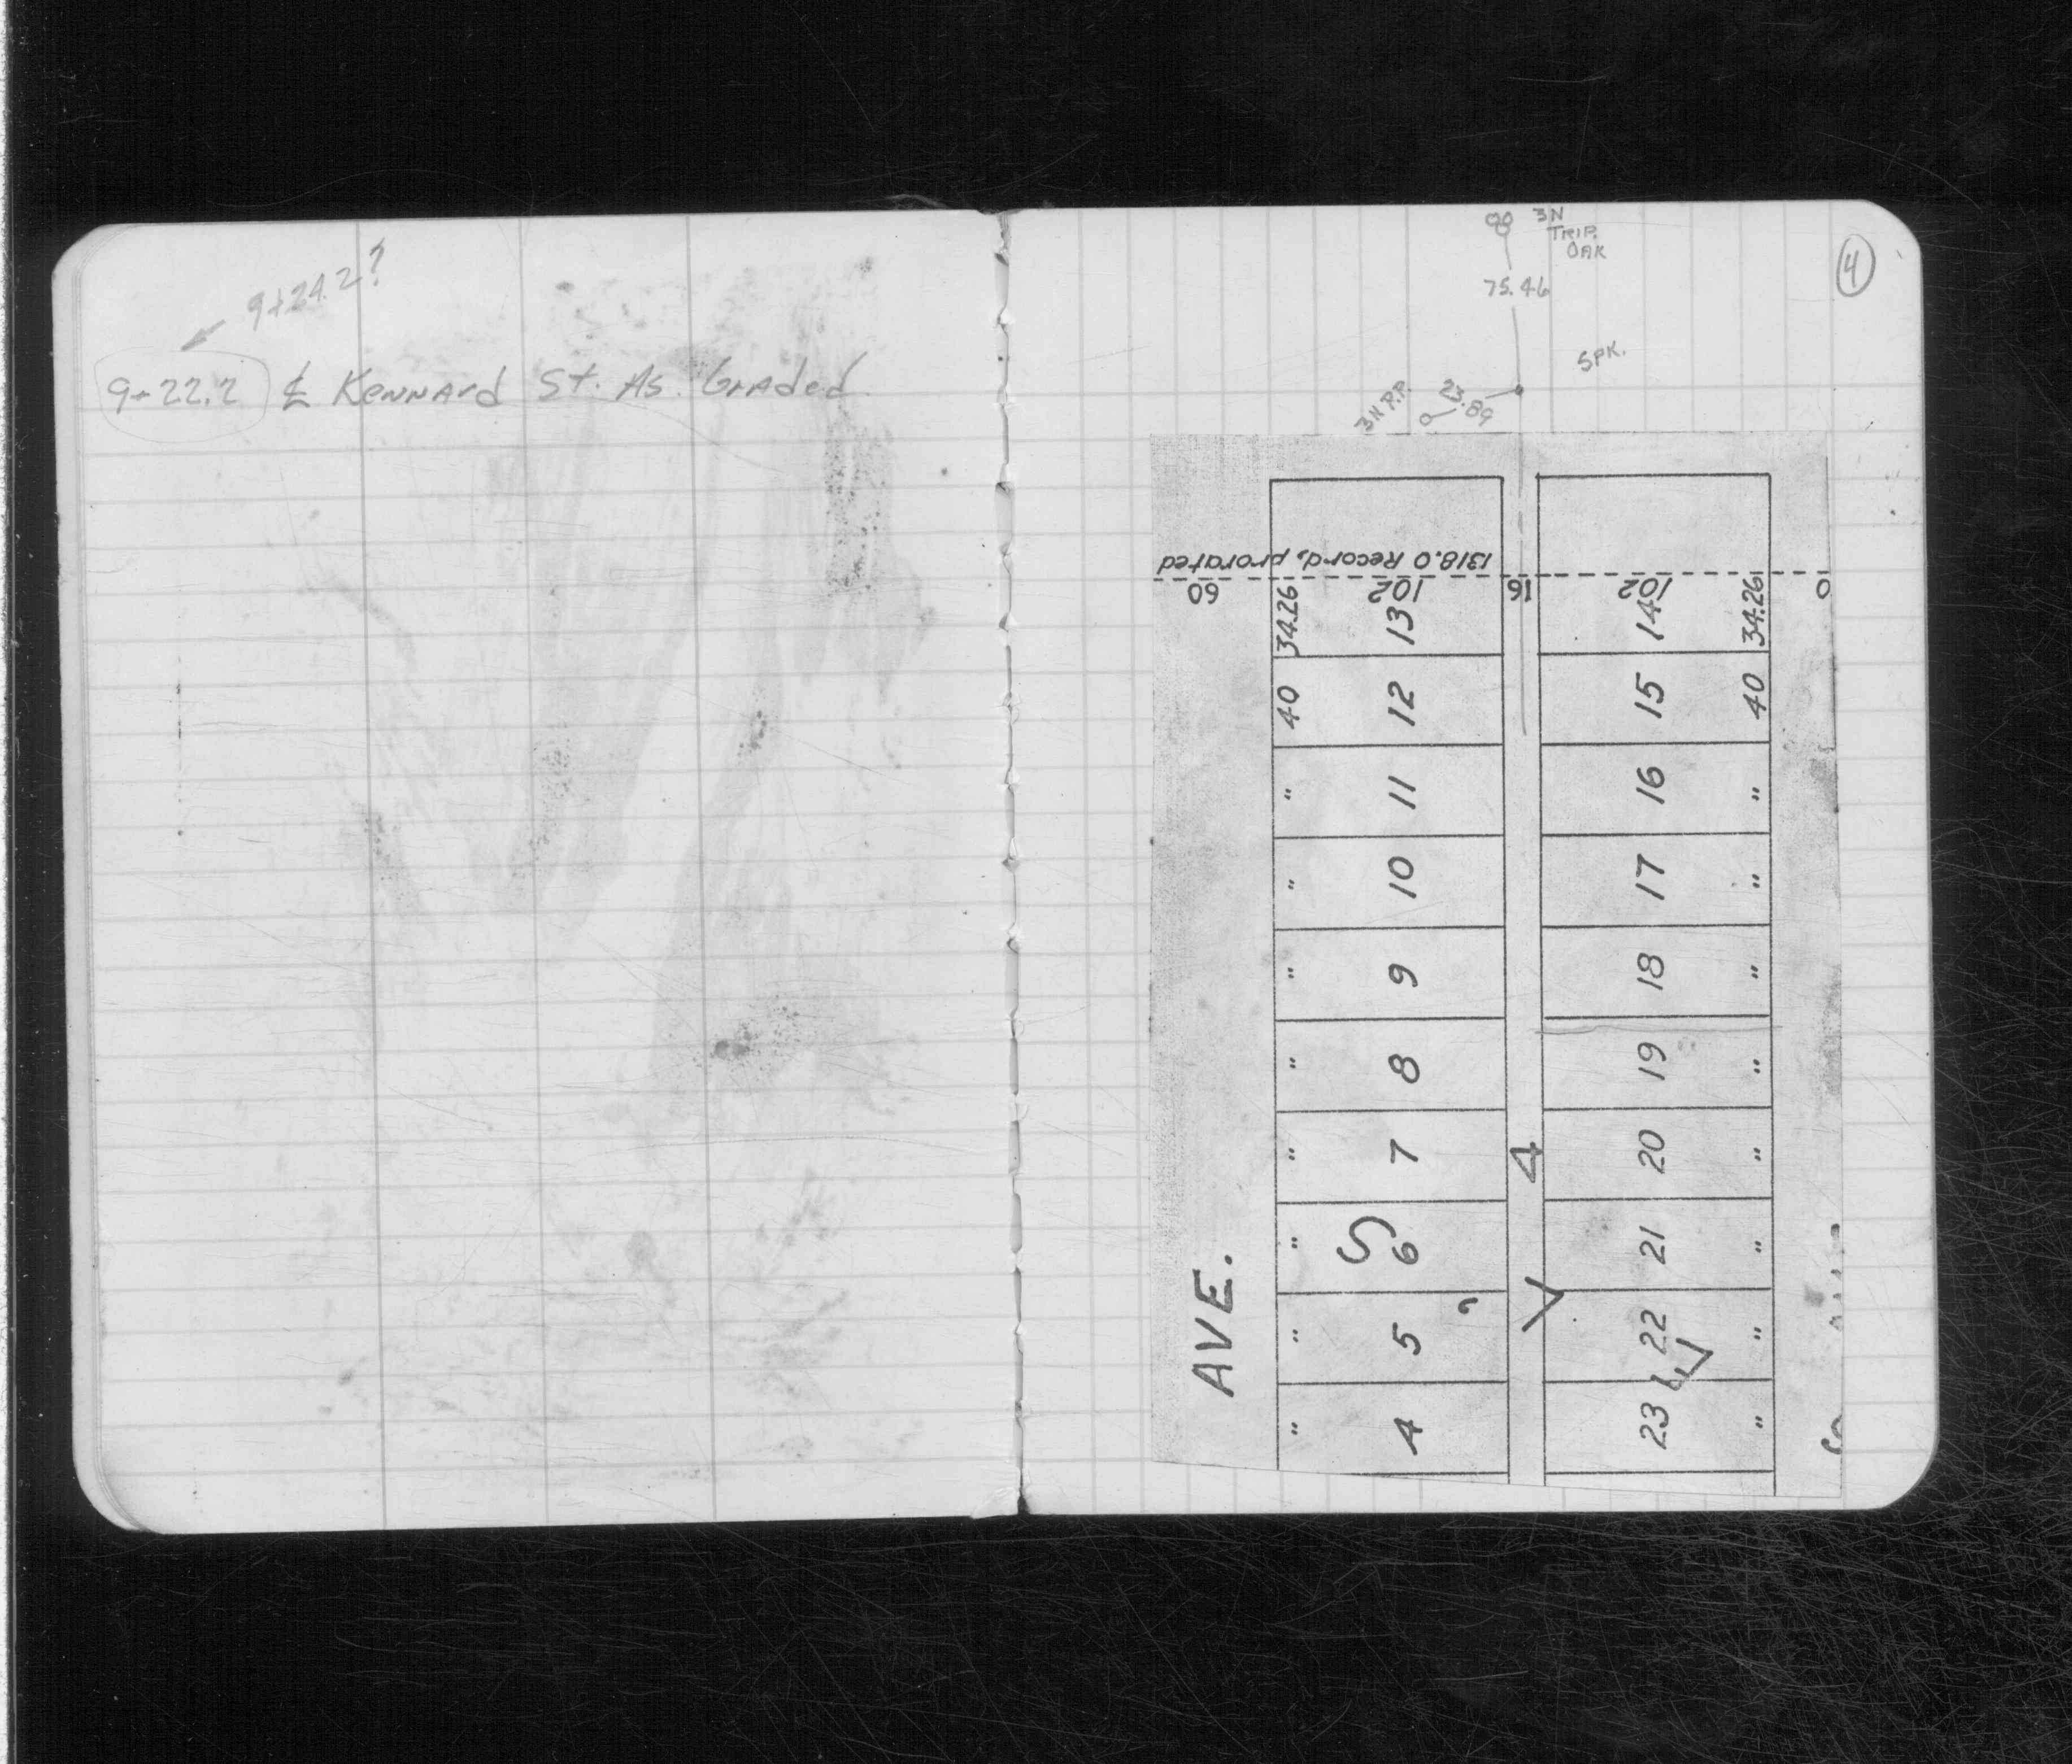 9+24.2?
9+22.2 ℄ Kennard St. As Graded
4
3N
TRIP.
OAK
75.46
SPK.
3N P.P.
23.89
1318.0 Record, prorated
60 102 16 102 0
34.26 13 14 34.26
40 12 15 40
" 11 16 "
" 10 17 "
" 9 18 "
" 8 19 "
" 7 4 20 "
" 6 21 "
" 5 22 "
" 4 23 "
AVE.